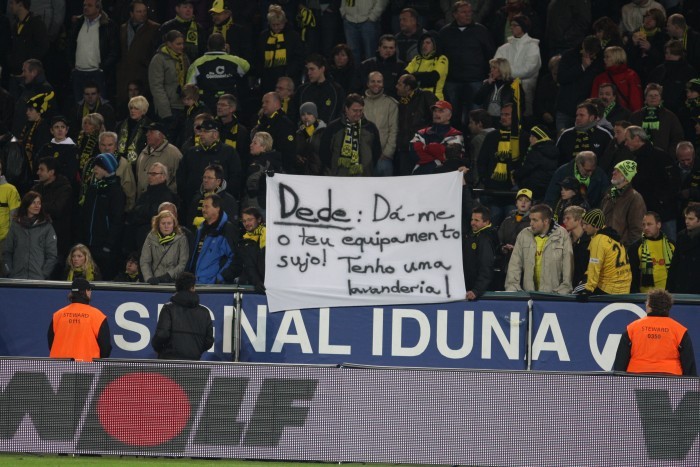 Dede: Dá-me
o teu equipamento
sujo! Tenho uma
lavanderia!
SIGNAL IDUNA
STEWARD
STEWARD
WOLF
W